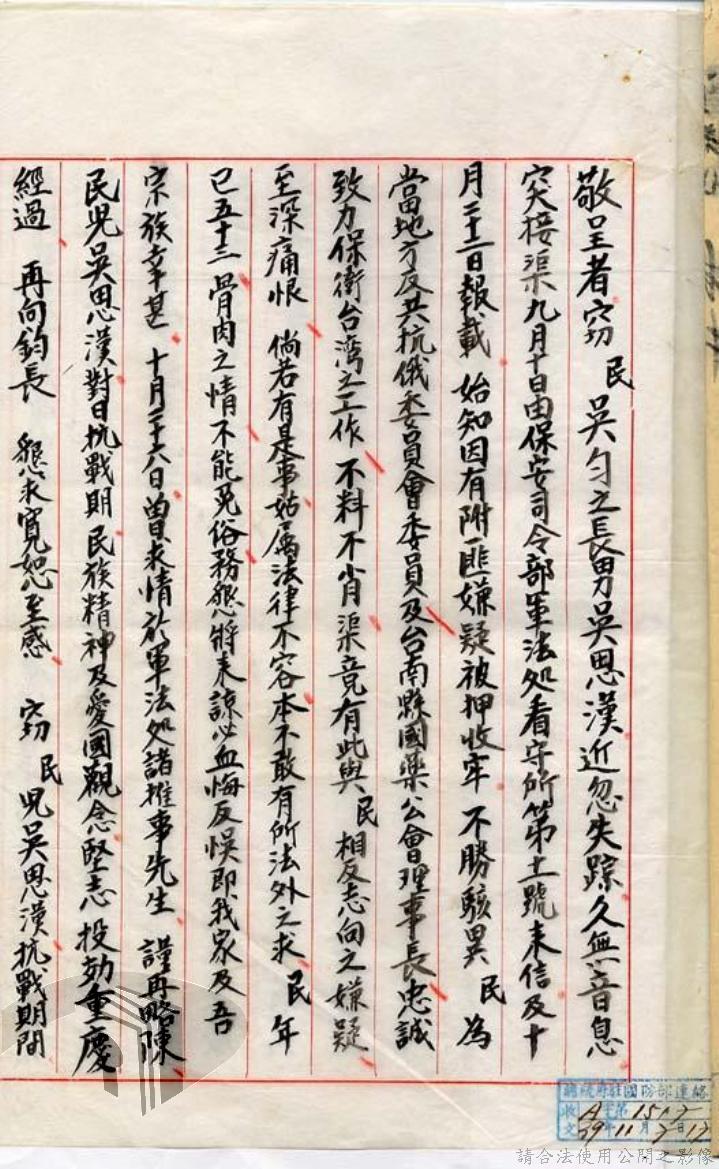 敬呈者窃民吳勻之長男吳思漢近忽失踪久無音息
突接渠九月十日由保安司令部軍法処看守所第十一號来信及十
月二十二日報載 始知因有附匪嫌疑被押收牢 不勝駭異 民為
當地方反共抗俄委員會委員及台南縣國藥公會理事長忠誠
致力保衛台湾之工作 不料不肖渠竟有此與民相反志向之嫌疑
至深痛恨 倘若有是事姑属法律不容本不敢有所法外之求 民年
已五十三 骨肉之情不能免俗務懇将来諒必血悔反悞即我家及吾
宗族幸甚 十月二十六日曽求情於軍法処諸推事先生 謹再略陳
民児吳思漢對日抗戰期民族精神及愛國觀念堅志投効重慶
經過 再向鈞長 懇求寬恕至感 窃民児吳思漢抗戰期間
總統府駐國防部連絡
收文 A字第150
39年11月7日12
請合法使用公開之影像